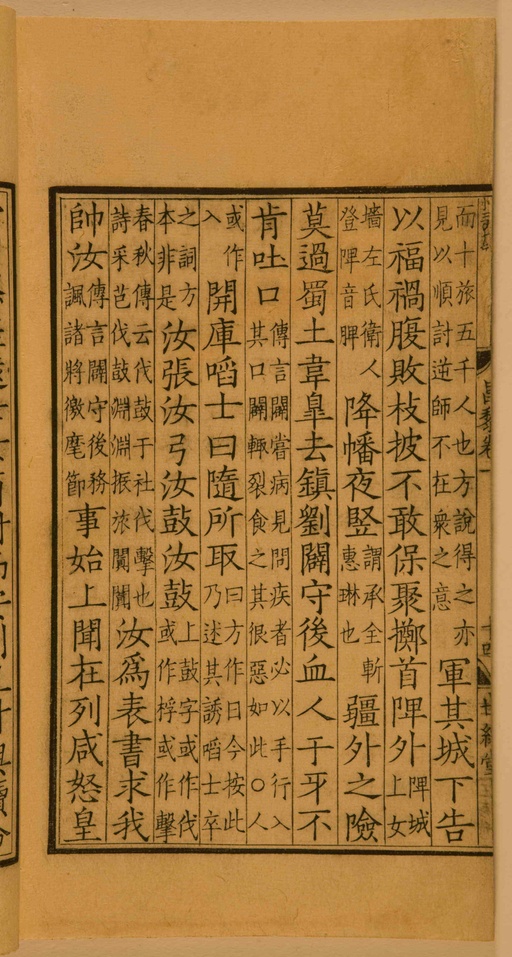 而十旅五千人也方說得之亦見以順討逆師不在衆之意軍其城下告
以福禍腹敗枝披不敢保聚擲首陴外陴城上女
墻左氏衛人登陴音脾降幡夜竪謂承全斬惠琳也疆外之險
莫過蜀土韋臯去鎮劉闢守後血人于牙不
肯吐口傳言闢嘗病見問疾者必以手行入其口闢輒裂食之其很惡如此○人
或作入開庫啗士曰隨所取曰方作日今按此乃述其誘啗士卒
之詞方本非是汝張汝弓汝鼓汝鼓上鼓字或作伐或作桴或作擊
春秋傳云伐鼓于社伐擊也詩采芑伐鼓淵淵振旅闐闐汝爲表書求我
帥汝傳言闢守後務諷諸將徼麾節事始上聞在列咸怒皇
昌黎卷一
十四
世綵堂